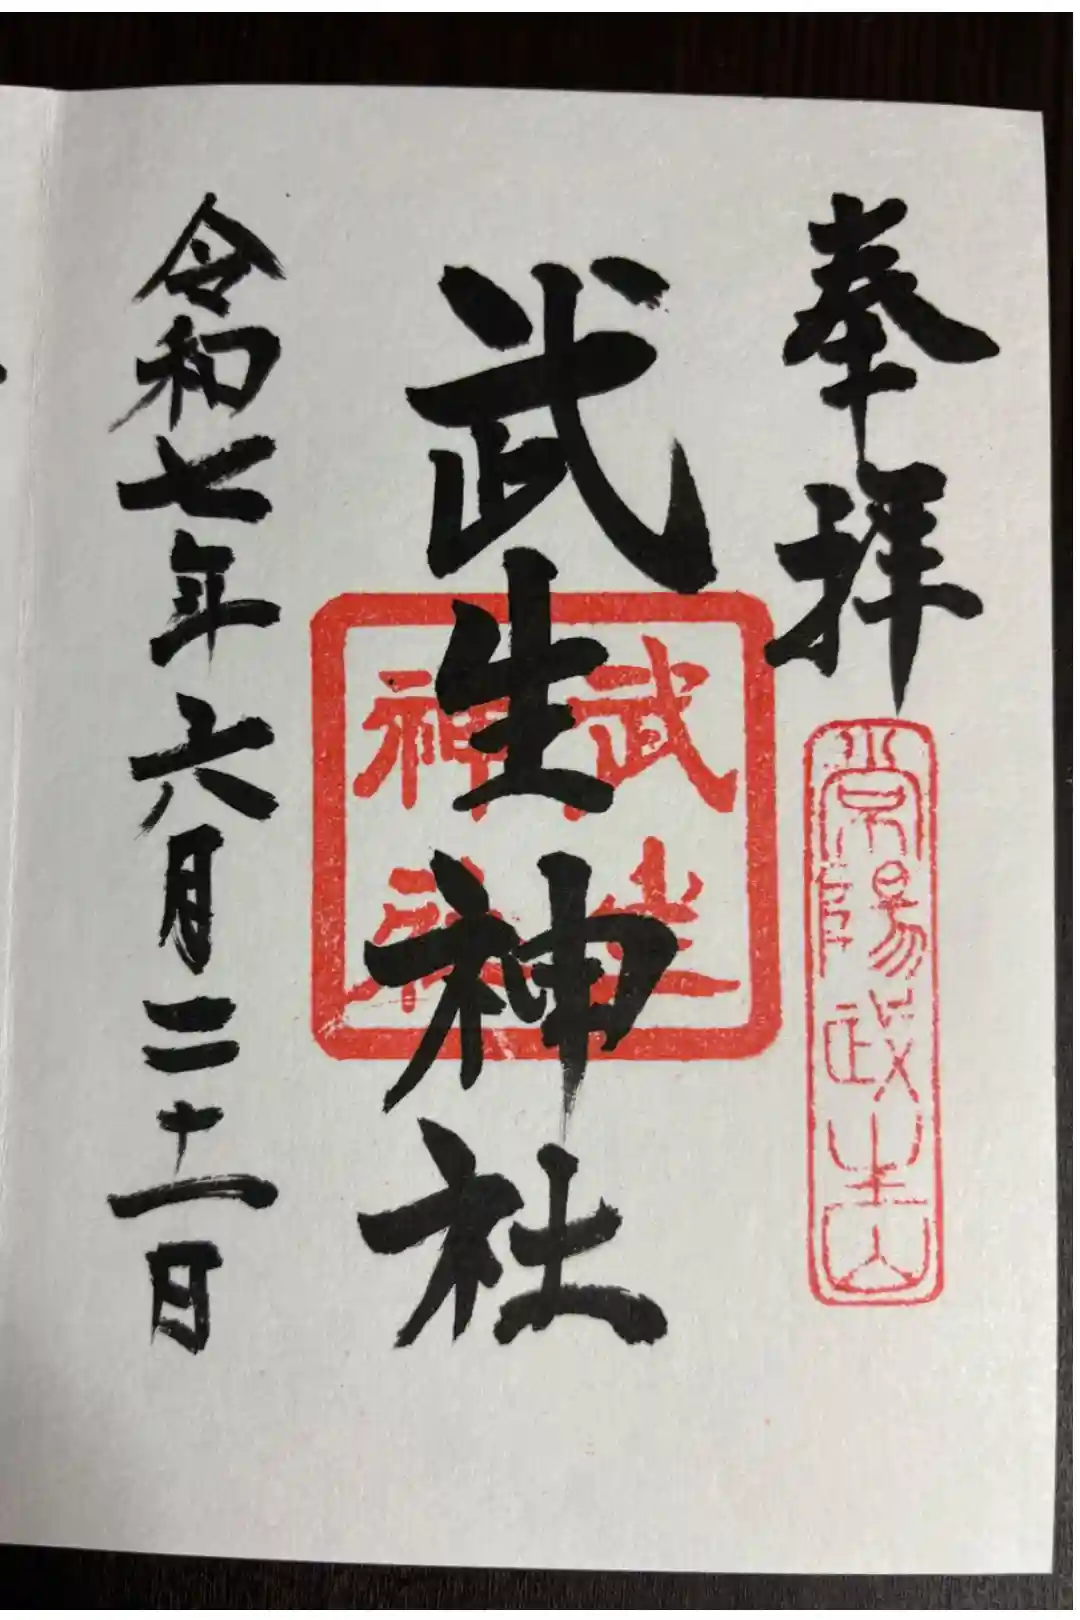 奉拝
常陽政生山
武生神社
武生
神社
令和七年六月二十一日